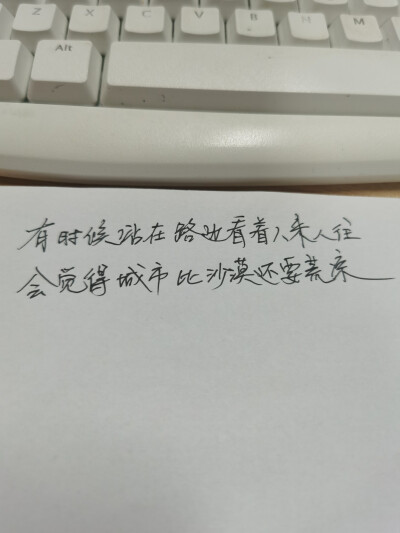 Z X C V B N M
Alt
有时候站在路边看着人来人往
会觉得城市比沙漠还要荒凉